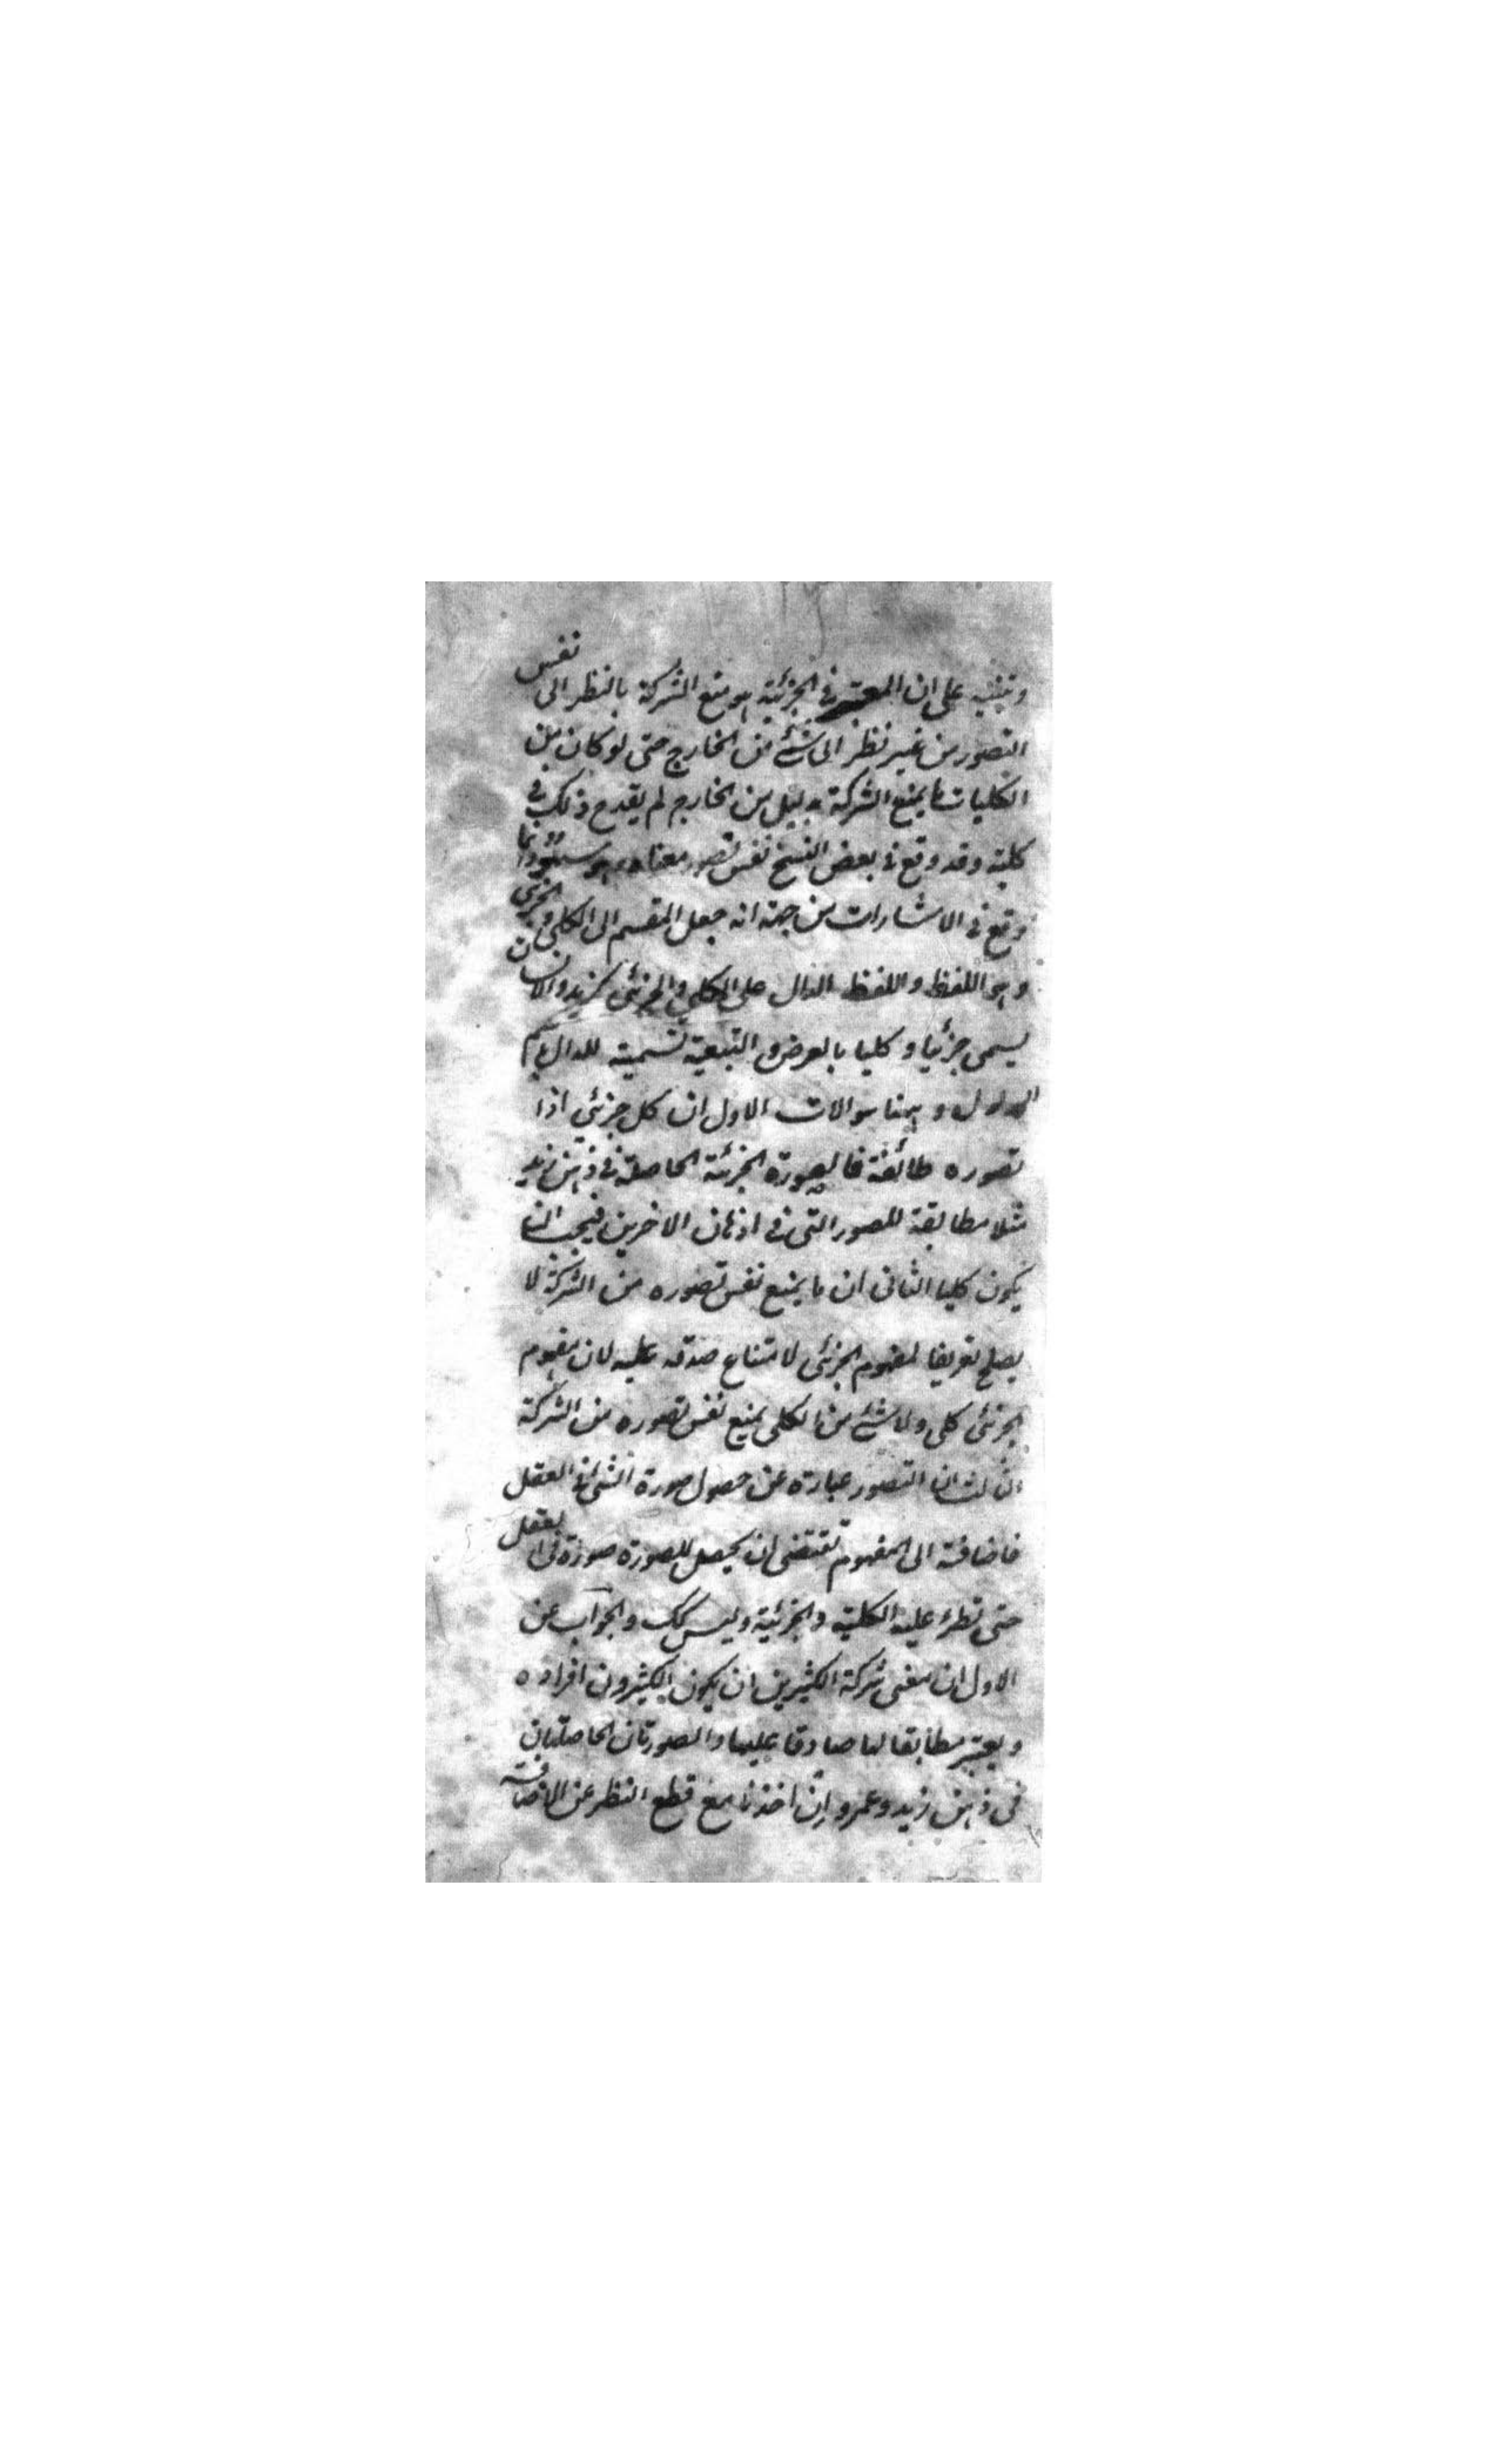 وتنبيه على ان المعتبر في الجزئية هو منع الشركة بالنظر الى نفس
التصور من غير نظر الى شئ من الخارج حتى لو كان من
الكليات ما يمنع الشركة بدليل من الخارج لم يقدح ذلك في
كلية وقد وقع في بعض النسخ نفس تصور معناه وهو سهو وانما
وقع في الاشارات من جهة انه جعل المقسم الى الكلي والجزئي
وهو اللفظ واللفظ الدال على الكلي والجزئي كزيد والانسان
يسمى جزئيا وكليا بالعرض والتبعية تسمية للدال باسم
المدلول وههنا سوالات الاول ان كل جزئي اذا
تصوره طائفة فالصورة الجزئية الحاصلة في ذهن زيد
مثلا مطابقة للصور التي في اذهان الاخرين فيجب ان
يكون كليا الثاني ان ما يمنع نفس تصوره من الشركة لا
يصلح تعريفا لمفهوم الجزئي لامتناع صدقه عليه لان مفهوم
الجزئي كلي ولا شئ من الكلي يمنع نفس تصوره من الشركة
الثالث ان التصور عبارة عن حصول صورة الشئ في العقل
فاضافته الى المفهوم تقتضي ان يحصل للصورة صورة في العقل
حتى تطرئ عليه الكلية والجزئية وليس كك والجواب عن
الاول ان معنى شركة الكثيرين ان يكون الكثيرون افراده
ويعتبر مطابقا لها صادقا عليها والصورتان الحاصلتان
في ذهن زيد وعمرو ان اخذتا مع قطع النظر عن الاضافة